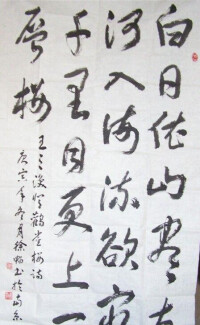 白日依山尽黄
河入海流欲穷
千里目更上一
层楼
王之涣登鹳雀楼诗
庚寅年冬月徐